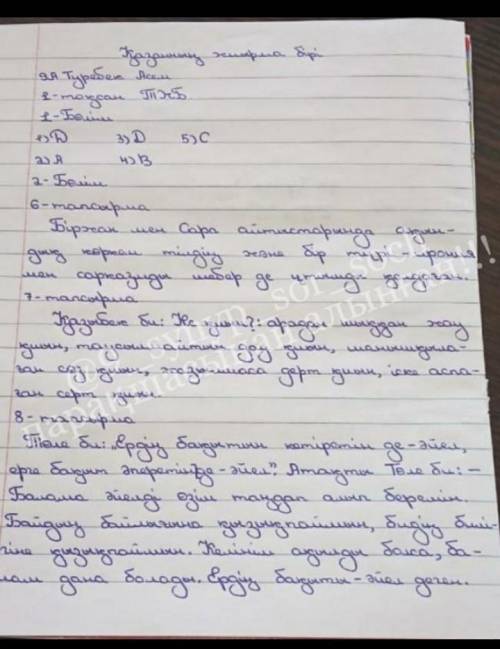 Қазанның жиырма бірі
9А Туребек Асем
1-тоқсан ТЖБ
1-Бөлім
1) D 3) D 5) C
2) A 4) B
2-Бөлім
6-тапсырма
Біржан мен Сара айтыстарында ақын-
дық көркем тілдің және бір түрі - ирония
мен сарказмды шебер де ұтымды қолданған.
7-тапсырма
Қазыбек би: Не қиын?: арадан шыққан жау
қиын, таусылмайтын дау қиын,
ған сөз қиын, жазылмаса дерт қиын, іске аспа-
ған серт қиын.
8-тапсырма
Төле би: „Ердің бақытын көтеретін де-әйел,
ерге бақыт әперетін де-әйел". Атақты Төле би: -
Балама әйелді өзім таңдап алып беремін.
Байдың байлығына қызықпаймын, бидің билі-
гіне қызықпаймын. Келінім ақылды болса, ба-
лам дана болады. Ердің бақыты-әйел деген.